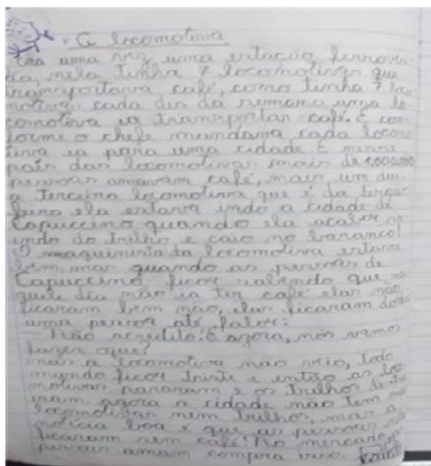 A locomotiva
Era uma vez uma estação ferroviá-
ria, nela tinha 7 locomotivas que
transportava café, como tinha 7 loco
motivas cada dia da semana uma lo-
comotiva ia transportar café. E con-
forme o chefe mandava cada locomo
tiva ia para uma cidade. E nesse
país das locomotivas mais de 1.000.000
pessoas amavam café, mais um dia
a terceira locomotiva que é da terça-
feira ela estava indo a cidade de
Capuccino quando ela acabou sa-
indo do trilho e caio no barranco!
O maquinista da locomotiva estava
bem, mas quando as pessoas de
Capuccino ficou sabendo que na
quele dia não ia ter café elas não
ficaram bem não, elas ficaram
uma pessoa até falou:
– Não acredito! E agora, nós vamos
fazer oque?
mais a locomotiva não veio, todo
mundo ficou triste e então as lo
motivas pararam e os trilhos
agora a cidade não tem
locomotivas nem trilhos, mas a
notícia boa x que as pessoas não
ficaram sem café! No mercado as
pessoas amam compra